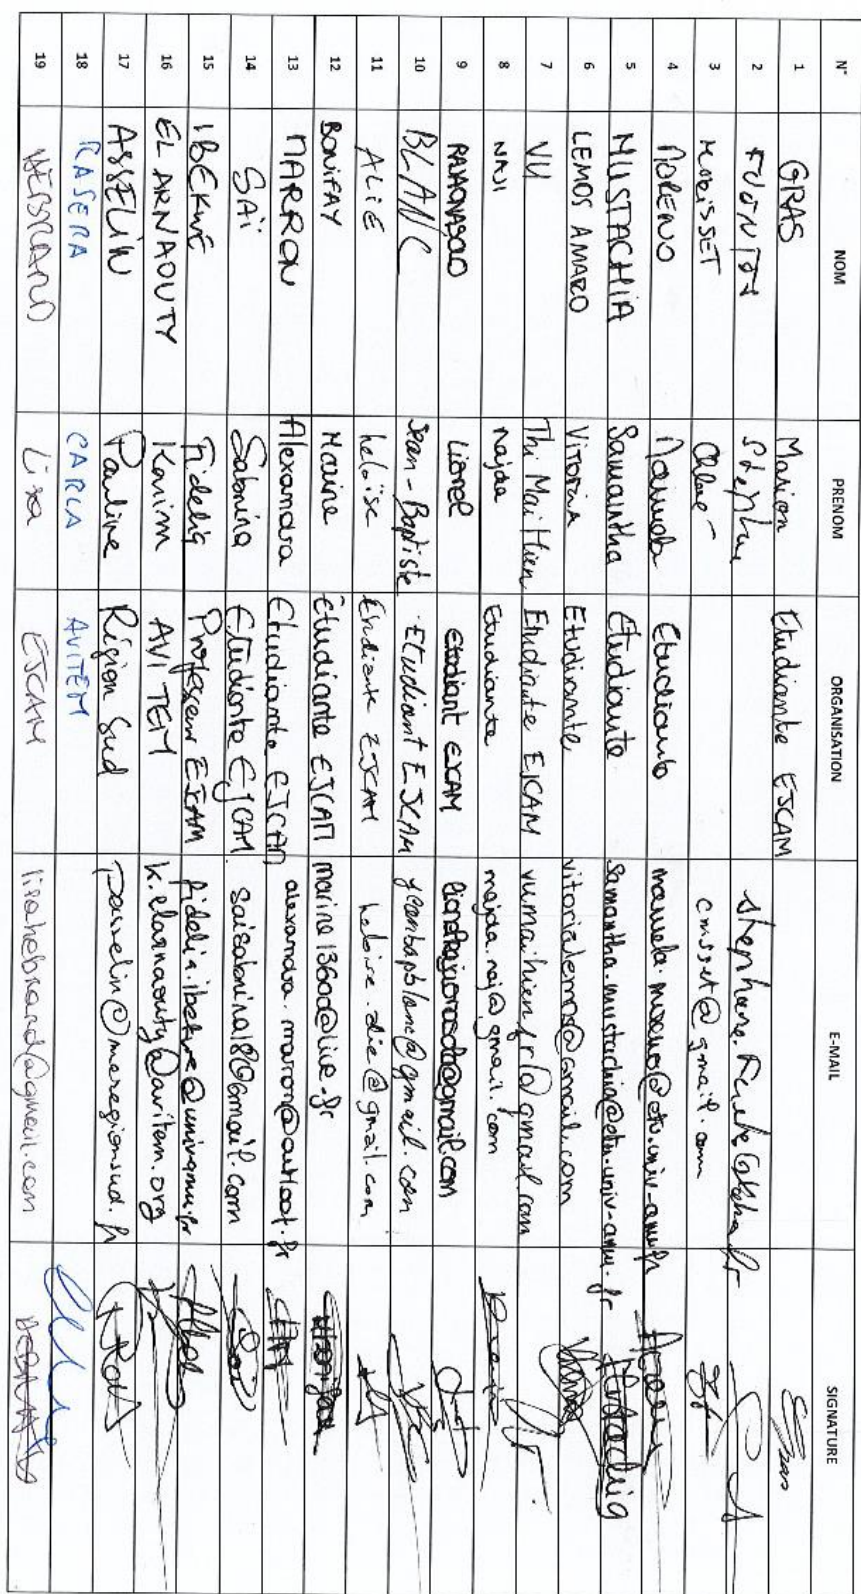 N° NOM PRENOM ORGANISATION E-MAIL SIGNATURE
1 GRAS Marion Etudiante EJCAM
2 Stephane
3 MORISSET Chloé cmsset@gmail.com
4 MORENO Manuela Etudiante
5 MUSTACHIA Samantha Etudiante samantha.mustachia@etu.univ-amu.fr Mustachia
6 LEMOS AMARO Vitoria Etudiante vitorialemos@gmail.com
7 VU Thi Mai Hien Etudiante EJCAM vumaihien.fr@gmail.com
8 NAJI Najda Etudiante
9 Lionel Etudiant EJCAM
10 BLANC Jean-Baptiste Etudiant EJCAM
11 ALIE heloïse Etudiante EJCAM heloise.alie@gmail.com
12 BONIFAY Marine Etudiante EJCAM marine13600@live.fr
13 MARRON Alexandra Etudiante EJCAM
14 SAÏ Sabrina Etudiante EJCAM saisabrina18@Gmail.com
15 IBEKWE Fidelia Professeur EJCAM
16 EL ARNAOUTY Karim AVITEM k.elarnaouty@avitem.org
17 ASSELIN Pauline Région Sud passelin@maregionsud.fr
18 RASERA CARLA AVITEM
19 HEBRARD Lisa EJCAM lisahebrard@gmail.com